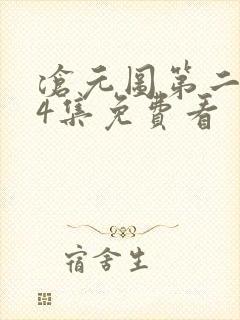 滄元图第二
4集免費看
宿舍生